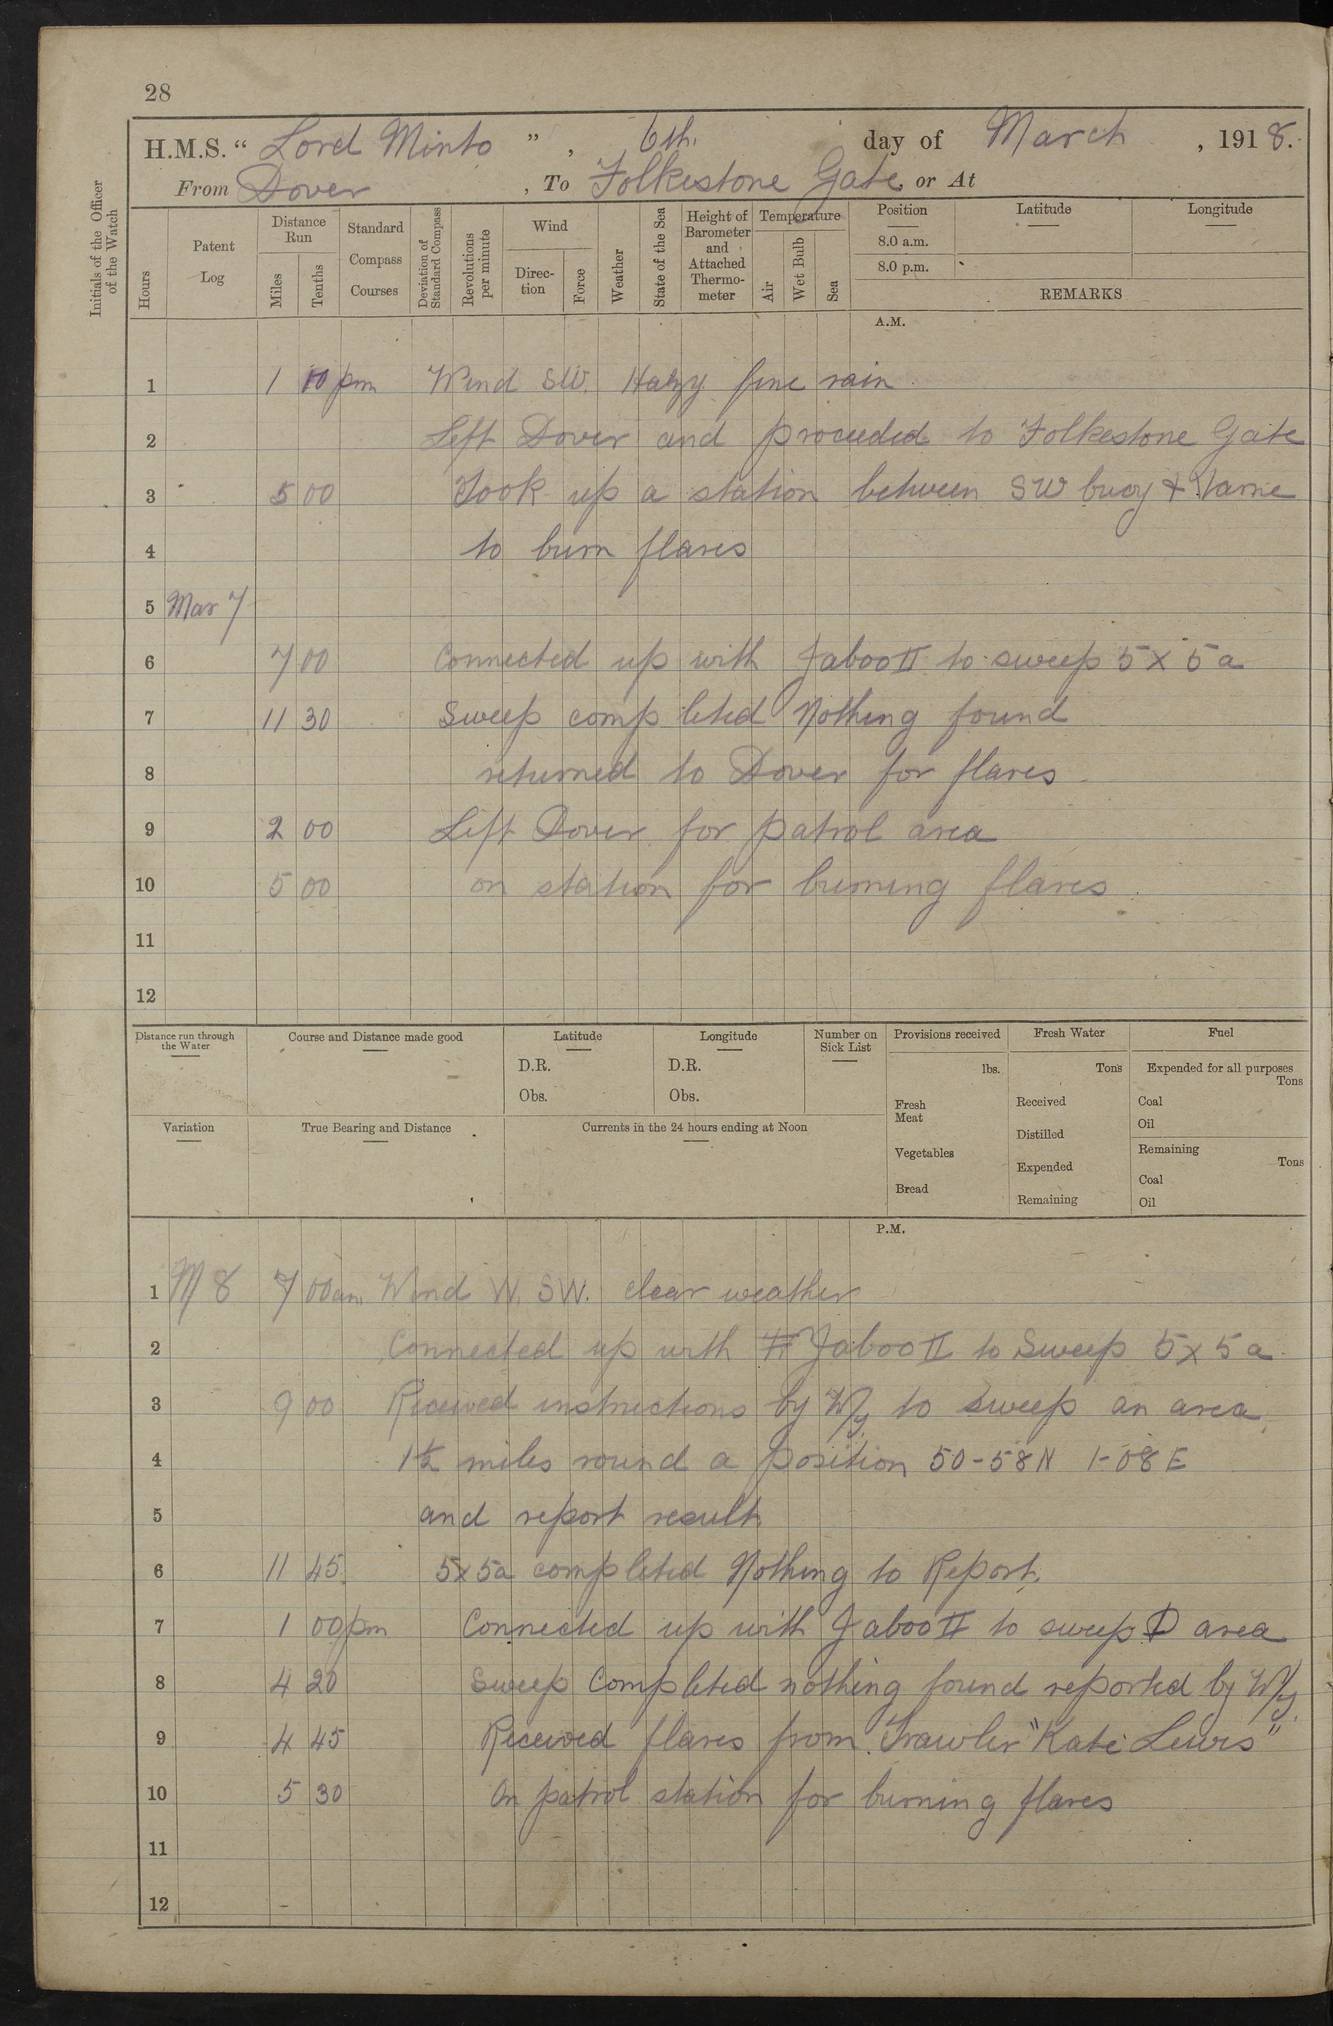 28
H.M.S. “ Lord Minto ” , 6th. day of March , 1918.
From Dover , To Folkestone Gate, or At
Initials of the Officer of the Watch
Hours
Patent Log
Distance Run
Miles
Tenths
Standard Compass Courses
Deviation of Standard Compass
Revolutions per minute
Wind
Direc-tion
Force
Weather
State of the Sea
Height of Barometer and Attached Thermo-meter
Temperature
Air
Wet Bulb
Sea
Position
8.0 a.m.
8.0 p.m.
Latitude
Longitude
REMARKS
A.M.
1 1 10 pm Wind SW. Hazy fine rain
2 Left Dover and proceeded to Folkestone Gate
3 5 00 Took up a station between SW buoy & Varne
4 to burn flares
5 Mar 7
6 7 00 Connected up with Jaboo II to sweep 5 x 5a
7 11 30 Sweep completed Nothing found
8 returned to Dover for flares
9 2 00 Left Dover for patrol area
10 5 00 on station for burning flares
11
12
Distance run through the Water
Course and Distance made good
Latitude
D.R.
Obs.
Longitude
D.R.
Obs.
Number on Sick List
Provisions received
lbs.
Fresh Meat
Vegetables
Bread
Fresh Water
Tons
Received
Distilled
Expended
Remaining
Fuel
Expended for all purposes
Tons
Coal
Oil
Remaining
Tons
Coal
Oil
Variation
True Bearing and Distance
Currents in the 24 hours ending at Noon
P.M.
1 M 8 7 00 am Wind W. SW. clear weather
2 Connected up with Jaboo II to Sweep 5 x 5a
3 9 00 Received instructions by W/y to sweep an area
4 1½ miles round a position 50-58 N 1-08 E
5 and report result
6 11 45 5x5a completed Nothing to Report.
7 1 00 pm Connected up with Jaboo II to sweep D area
8 4 20 Sweep Completed nothing found reported by W/y.
9 4 45 Received flares from Trawler "Kate Lewis"
10 5 30 On patrol station for burning flares
11
12